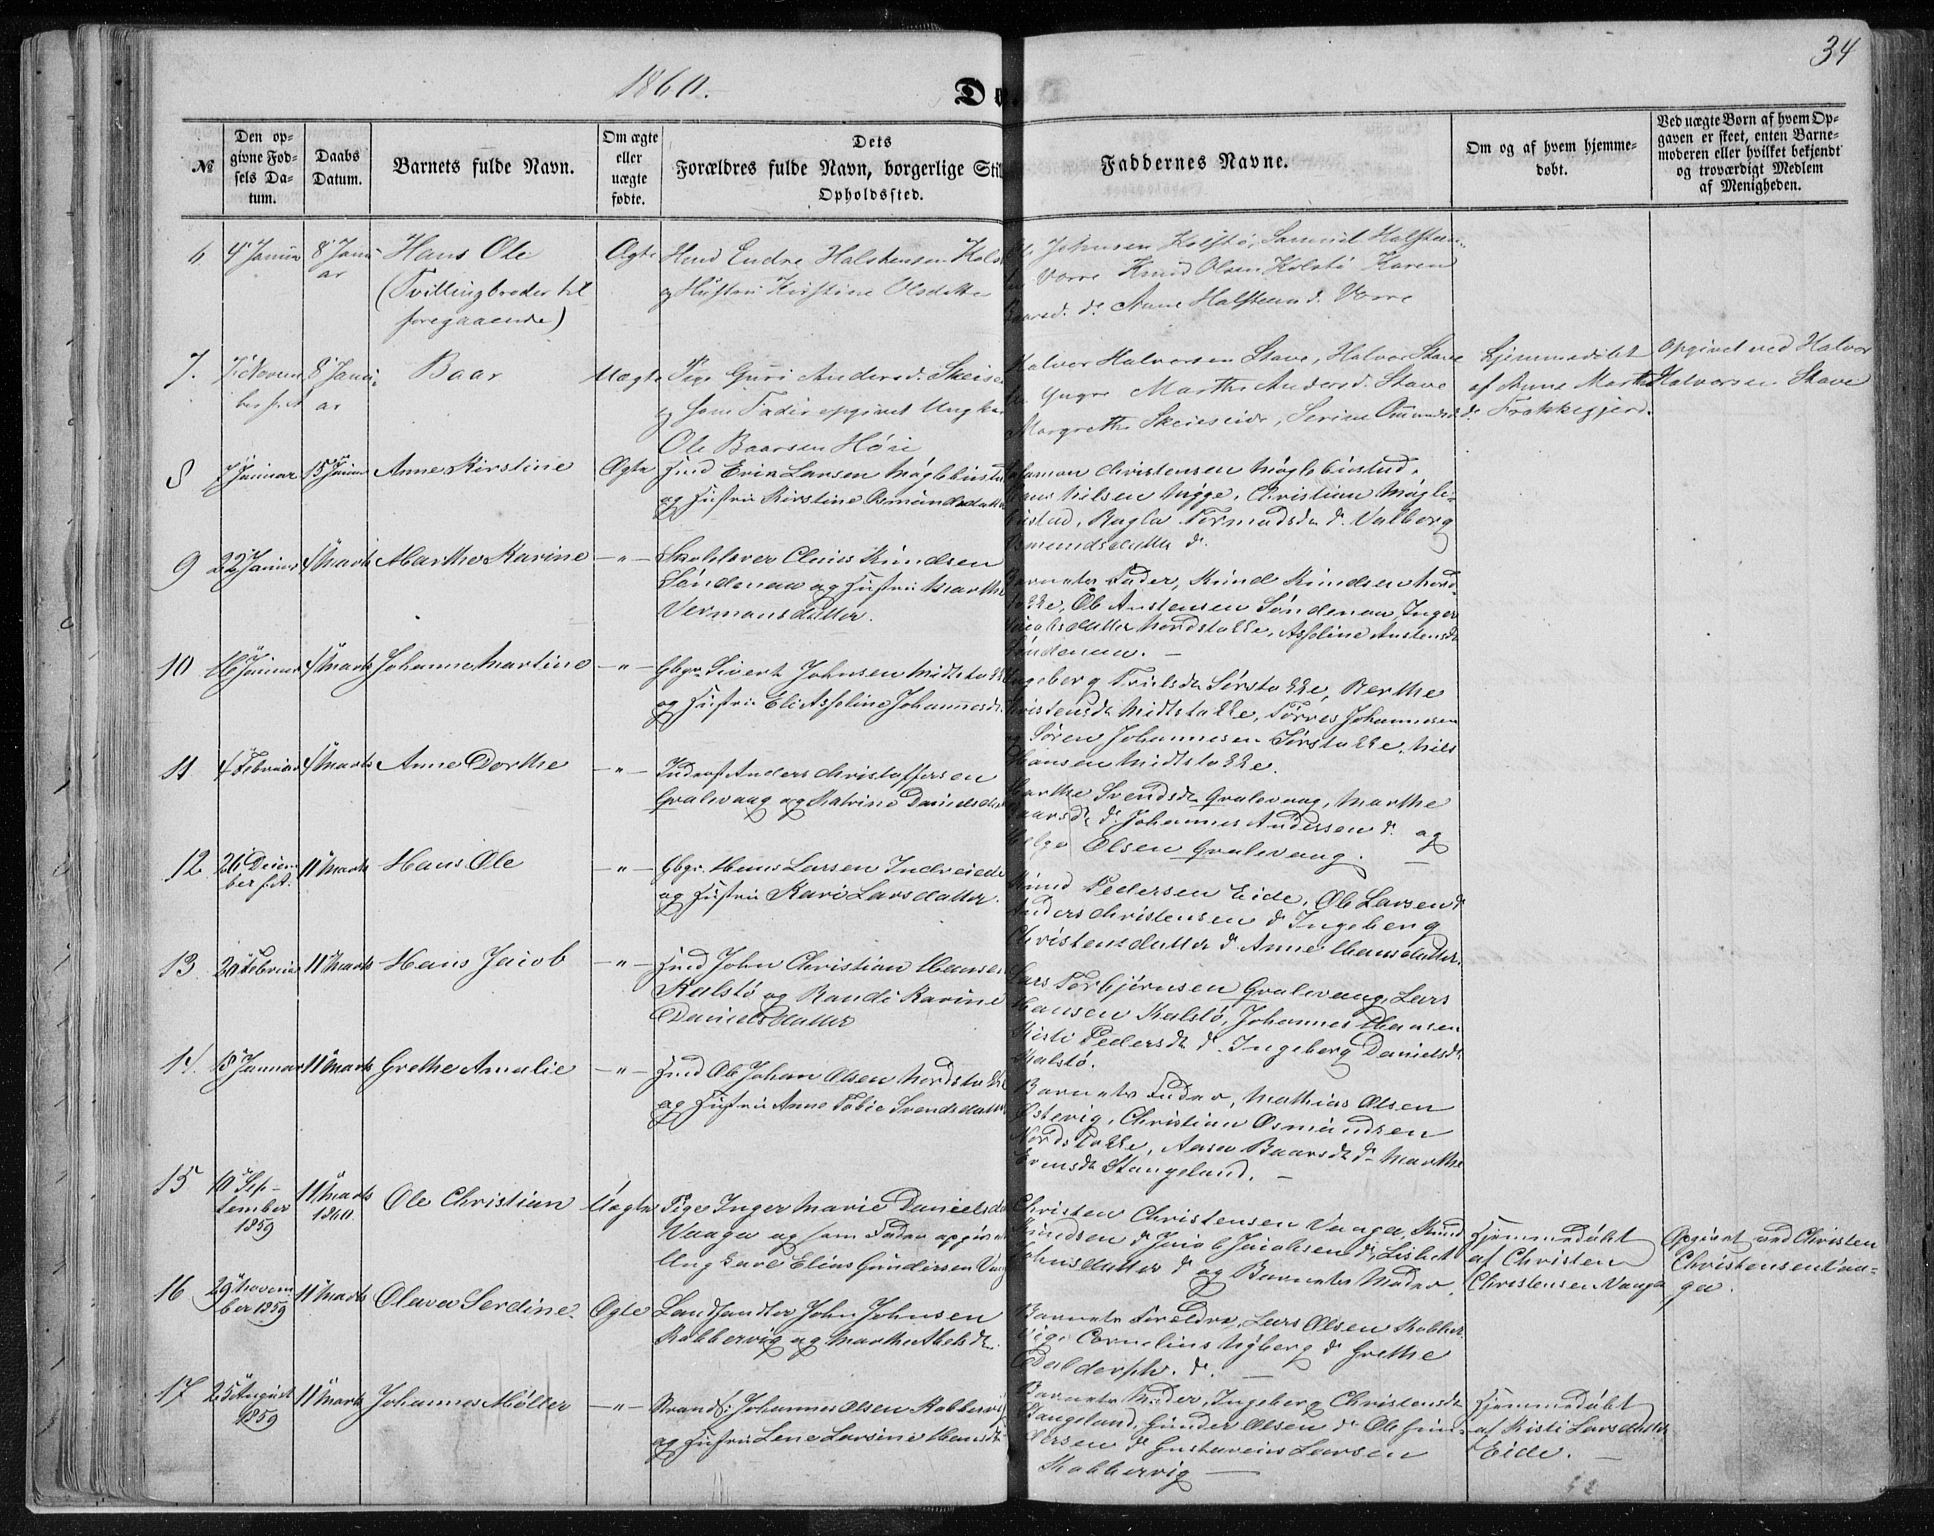 34
1860.
Do
№
Den op-
givne Fød-
sels Da-
tum.
Daabs
Datum.
Barnets fulde Navn.
Om ægte
eller
uægte
fødte.
Dets
Forældres fulde Navn, borgerlige Stil
Opholdssted.
Faddernes Navne.
Om og af hvem hjemme-
døbt.
Ved uægte Børn af hvem Op-
gaven er skeet, enten Barne-
moderen eller hvilket bekjendt
og troværdigt Medlem
af Menigheden.
6
4 Januar
8 Janu
ar
Hans Ole
(Tvillingbroder til
foregaaende)
Ægte
Endre Halstensen
og Hustru Kirstine Olsdatter
Johnsen Kolstø, Samuel Halsten
Vorre Knud Olsen Kolstø Karen
Baarsd. ds Anne Halstensd. Vorre
7.
7 Novem
ber f. A
8 Janu
ar
Baar
Uægte
Pige Guri Andersd. Skeise
og som Fader opgivet Ungkar
Ole Baarsen Høie
Halvor Halvorsen Stave, Halvor Stave
Yngre Marthe Andersd. Stave
Margrethe Skeieseide, Serine Osmundsd
hjemmedøbt
af Anne Marthe
Opgivet ved Halvor
Halvorsen Stave
8
7 Januar
15 Januar
Anne Kirstine
Ægte
Erik Larsen Møglebustad
og Hustru Kirstine Osmundsdatter
Salomon Christensen Møglebustad,
Hans Nilsen Nygge, Christian Møgle-
bustad, Ragla Tormodsdr ds Valborg
Osmundsdatter ds.
9
22 Januar
4 Marts
Marthe Karine
-"-
Skolelærer Claus Knudsen
Søndenaa og Hustru Marthe
Vermansdatter.
Barnets Fader, Knud Knudsen Nord-
stokke, Ole Austensen Søndenaa, Inger
Jacobsdatter Nordstokke, Asseline Austensdr
Søndenaa. –
10
16 Januar
4 Marts
Johanne Martine
-"-
Gbgr Sivert Johnsen Midtstokke
og Hustru Eli Asseline Johannesdr.
Ingeborg Troelsdr Sørstokke, Berthe
Christensdr Midtstokke, Torres Johannesen
og Søren Johannesen Sørstokke, Nils
Hansen Midtstokke.
11
4 Februar
4 Marts
Anne Dorthe
-"-
Inderst Anders Christoffersen
Gvalevaag og Katrine Danielsdtr
Marthe Svendsdr Gvalevaag, Marthe
Baarsdr ds. Johannes Andersen ds. og
Helge Olsen Gvalevaag. –
12
26 Decem-
ber f. A.
11 Marts
Hans Ole
-"-
Gbgr. Hans Larsen Indreeide
og Hustru Kari Larsdatter.
Knud Pedersen Eide, Ole Larsen ds
Anders Christensen ds Ingeborg
Christensdatter ds Anne Hansdatter.
13
20 Februar
11 Marts
Hans Jacob
-"-
Hmd John Christian Hansen
Kalstø og Randi Karine
Danielsdatter
Lars Torbjørnsen Gvalevaag, Lars
Hansen Kalstø, Johannes Hansen
Kisti Pedersdr ds. Ingeborg Danielsdr
Kalstø.
14
15 Januar
11 Marts
Grethe Amalie
-"-
Hmd Ole Johan Olsen Nordstokke
og Hustru Anne Tobie Svendsdatter
Barnets Fader, Mathias Olsen
Østevig, Christian Osmundsen
Nordstokke, Aasa Baarsdr ds Marthe
Evensdr Stangeland. –
15
10 Sep-
tember
1859
11 Marts
1860.
Ole Christian
Uægte
Pige Inger Marie Danielsdr
Vaaga og som Fader opgivet
Ungkarl Elias Gundersen Vaaga
Christen Christensen Vaaga, Knud
Knudsen ds Jacob Jacobsen ds, Lisbet
Johnsdatter ds og Barnets Moder.
Hjemmedøbt
af Christen
Christensen Vaaga
Opgivet ved Christen
Christensen Vaa-
ga.
16
29 Novem
ber 1859
11 Marts
Olava Serdine.
Ægte
Landhandler John Johnsen
Kobbervig og Marthe Abelsdr.
Barnets Forældre, Lars Olsen Kobber
vig, Cornelius Nyberg ds Grethe
Balderssh. ds. –
17
25 August
1859
11 Marts
Johannes Møller
-"-
Strands. Johannes Olsen Kobbervig
og Hustru Lene Larsine Hansdr
Barnets Moder, Ingeborg Christensdr
Stangeland, Gunder Olsen ds Ole Gun-
dersen ds Gustavius Larsen
Kobbervig –
Hjemmedøbt
af Kisti Larsdatter
Eide. –